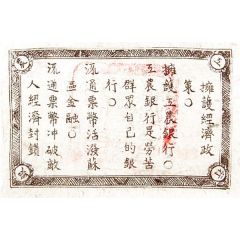 擁護經濟政
策○
擁護工農銀行○
工農銀行是勞苦
群眾自己的銀
行○
流通票幣活潑蘇
區金融○
流通票幣冲破敵
人經濟封鎖